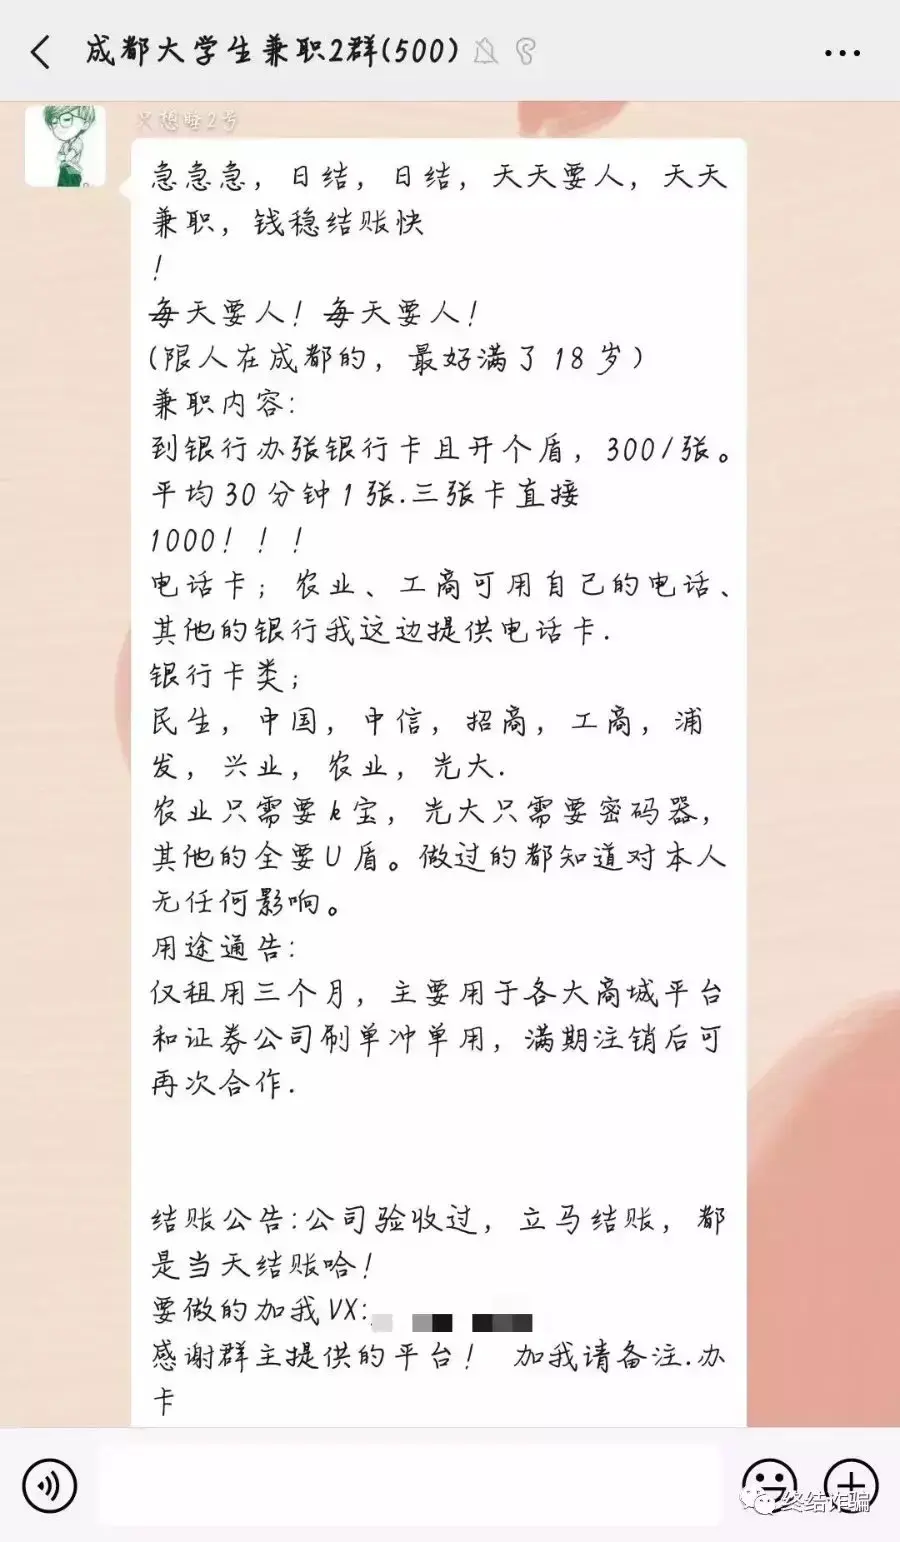 成都大学生兼职2群(500)
只想睡2号
急急急，日结，日结，天天要人，天天
兼职，钱稳结账快
！
每天要人！每天要人！
(限人在成都的，最好满了18岁)
兼职内容:
到银行办张银行卡且开个盾，300/张。
平均30分钟1张.三张卡直接
1000！！！
电话卡；农业、工商可用自己的电话、
其他的银行我这边提供电话卡.
银行卡类；
民生，中国，中信，招商，工商，浦
发，兴业，农业，光大.
农业只需要k宝，光大只需要密码器，
其他的全要U盾。做过的都知道对本人
无任何影响。
用途通告:
仅租用三个月，主要用于各大商城平台
和证券公司刷单冲单用，满期注销后可
再次合作.
结账公告:公司验收过，立马结账，都
是当天结账哈！
要做的加我VX:
感谢群主提供的平台！ 加我请备注.办
卡
终结诈骗